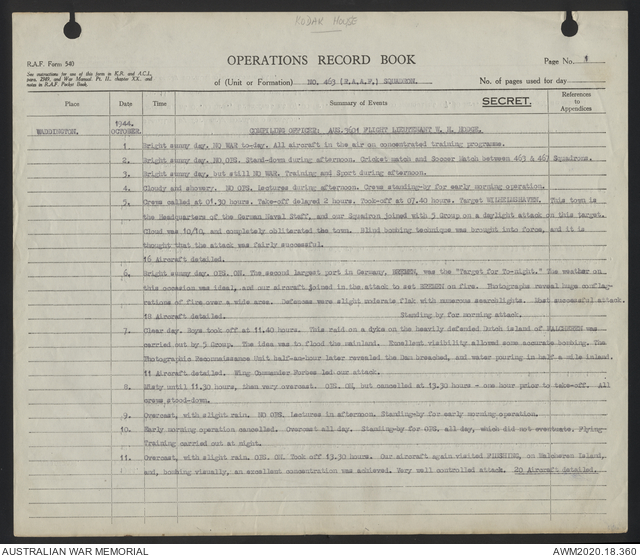 KODAK HOUSE
R.A.F. Form 540
See instructions for use of this form in K.R. and A.C.I.,
para. 2349, and War Manual Pt. II., chapter XX., and
notes in R.A.F. Pocket Book.
OPERATIONS RECORD BOOK
of (Unit or Formation) NO. 463 (R.A.A.F.) SQUADRON.
Page No. 1
No. of pages used for day
Place Date Time Summary of Events SECRET. References to Appendices
WADDINGTON. 1944. OCTOBER. COMPILING OFFICER: AUS.3601 FLIGHT LIEUTENANT W. H. HODGE.
1. Bright sunny day. NO WAR to-day. All aircraft in the air on concentrated training programme.
2. Bright sunny day. NO OPS. Stand-down during afternoon. Cricket match and Soccer Match between 463 & 467 Squadrons.
3. Bright sunny day, but still NO WAR. Training and Sport during afternoon.
4. Cloudy and showery. NO OPS. Lectures during afternoon. Crews standing-by for early morning operation.
5. Crews called at 01.30 hours. Take-off delayed 2 hours. Took-off at 07.40 hours. Target WILHELMSHAVEN. This town is
the Headquarters of the German Naval Staff, and our Squadron joined with 5 Group on a daylight attack on this target.
Cloud was 10/10, and completely obliterated the town. Blind bombing technique was brought into force, and it is
thought that the attack was fairly successful.
16 Aircraft detailed.
6. Bright sunny day. OPS. ON. The second largest port in Germany, BREMEN, was the "Target for To-night." The weather on
this occasion was ideal, and our aircraft joined in the attack to set BREMEN on fire. Photographs reveal huge conflag-
rations of fire over a wide area. Defences were slight moderate flak with numerous searchlights. Most successful attack.
18 Aircraft detailed. Standing-by for morning attack.
7. Clear day. Boys took off at 11.40 hours. This raid on a dyke on the heavily defended Dutch island of WALCHEREN was
carried out by 5 Group. The idea was to flood the mainland. Excellent visibility allowed some accurate bombing. The
Photographic Reconnaissance Unit half-an-hour later revealed the Dam breached, and water pouring in half a mile inland.
11 Aircraft detailed. Wing Commander Forbes led our attack.
8. Misty until 11.30 hours, then very overcast. OPS. ON, but cancelled at 13.30 hours - one hour prior to take-off. All
crews stood-down.
9. Overcast, with slight rain. NO OPS. Lectures in afternoon. Standing-by for early morning operation.
10. Early morning operation cancelled. Overcast all day. Standing-by for OPS. all day, which did not eventuate. Flying-
Training carried out at night.
11. Overcast, with slight rain. OPS. ON. Took off 13.30 hours. Our aircraft again visited FLUSHING, on Walcheren Island,
and, bombing visually, an excellent concentration was achieved. Very well controlled attack. 20 Aircraft detailed.
AUSTRALIAN WAR MEMORIAL
AWM2020.18.360